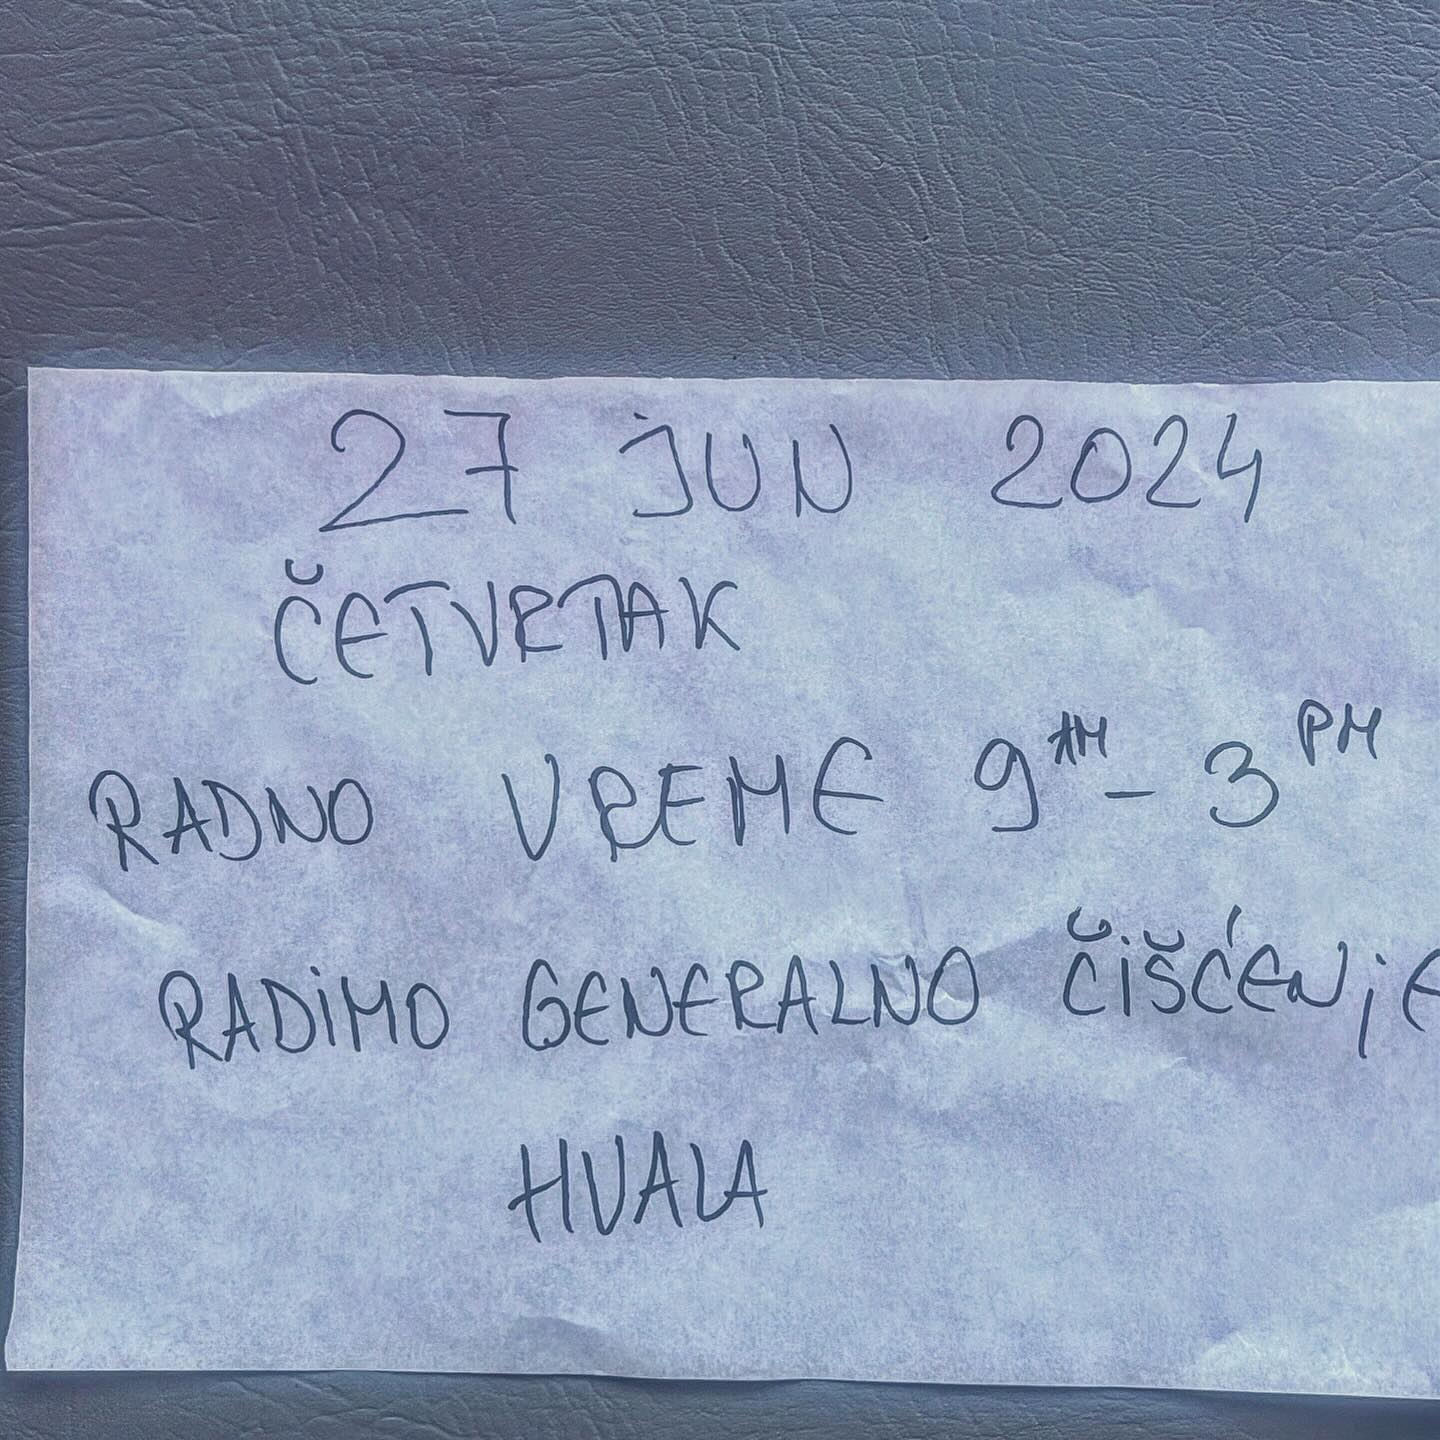 27 JUN 2024
ČETVRTAK
RADNO VREME 9AM - 3PM
RADIMO GENERALNO ČIŠĆENJE
HVALA